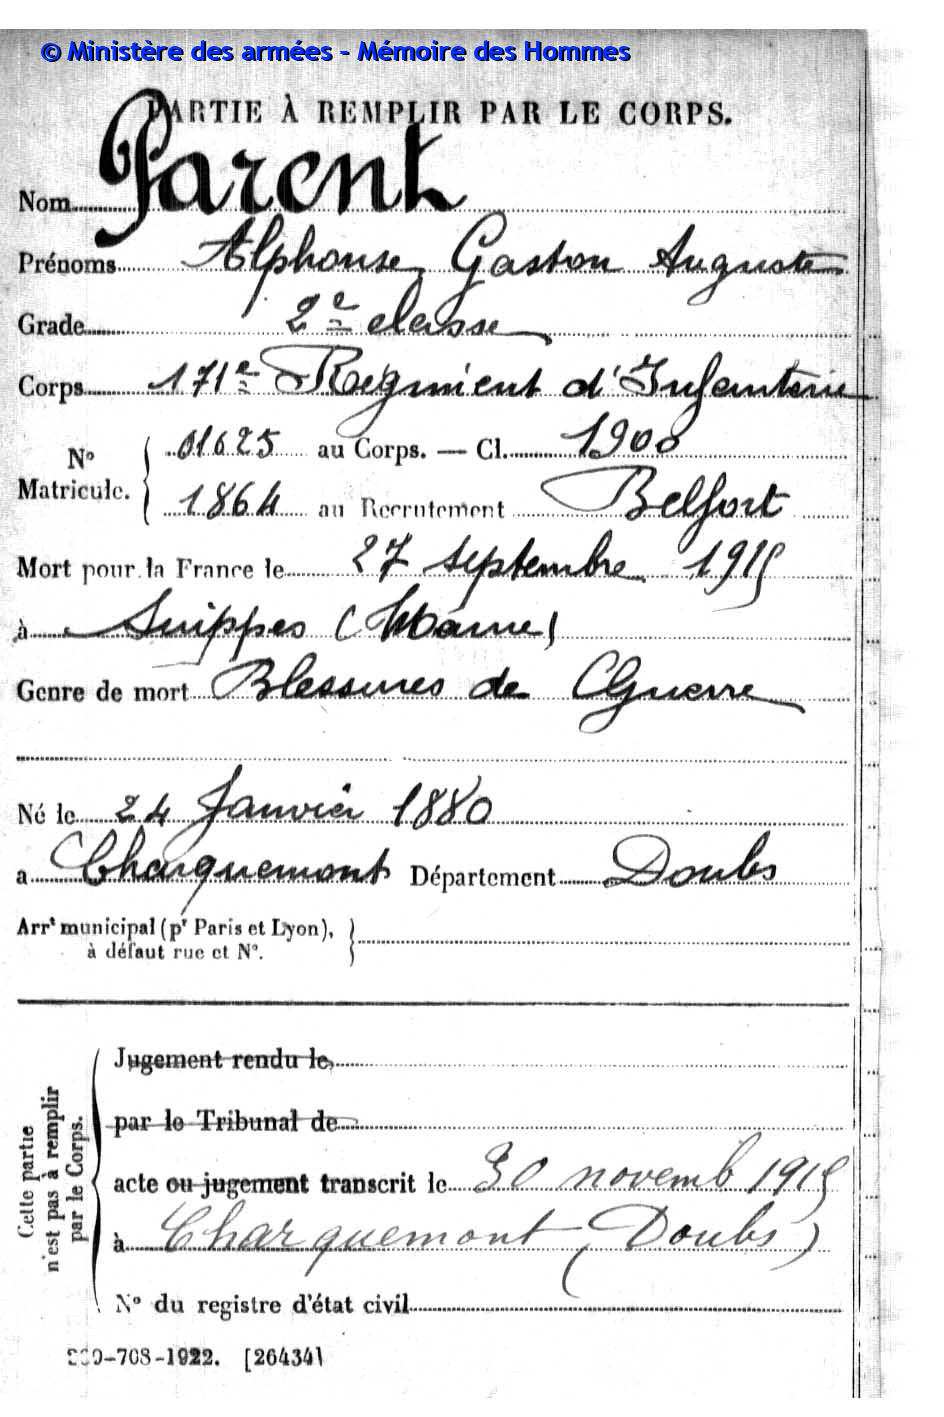 © Ministère des armées - Mémoire des Hommes
PARTIE À REMPLIR PAR LE CORPS.
Nom Parent
Prénoms Alphonse Gaston Auguste
Grade 2e classe
Corps 171e Régiment d'Infanterie
N° Matricule. 01625 au Corps. — Cl. 1900
1864 au Recrutement Belfort
Mort pour la France le 27 septembre 1915
à Suippes (Marne)
Genre de mort Blessures de Guerre
Né le 24 Janvier 1880
a Charquemont Département Doubs
Arrt municipal (pr Paris et Lyon),
à défaut rue et N°.
Cette partie
n'est pas à remplir
par le Corps.
Jugement rendu le
par le Tribunal de
acte ou jugement transcrit le 30 novemb 1915
à Charquemont (Doubs)
N° du registre d'état civil
-708-1922. [26434]